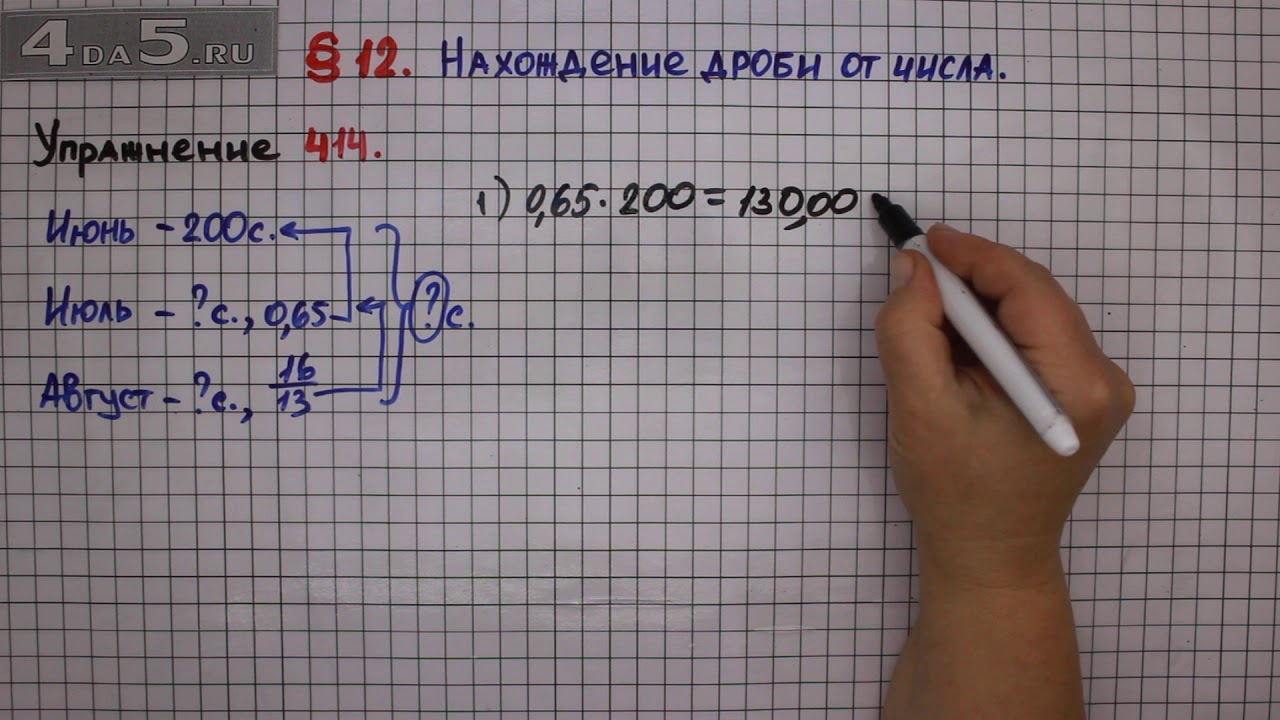 4DA5.RU
§ 12. Нахождение дроби от числа.
Упражнение 414.
1) 0,65 · 200 = 130,00
Июнь - 200с.
Июль - ? с., 0,65
? с.
Август - ? с., 16/13